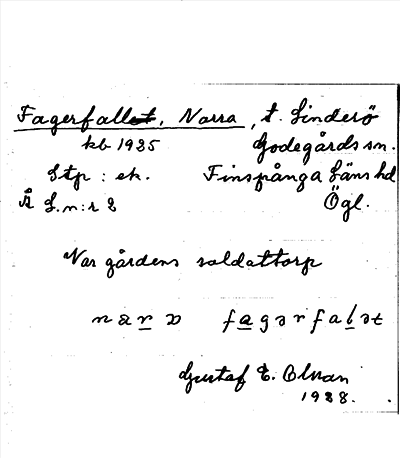 Fagerfallet, Norra, t. Sinderö
kb 1935 Godegårds sn.
Stp : ek. Finspånga läns hd
Å L.n:r 2 Ögl.
Var gårdens soldattorp
fagərfalət
Gustaf E. Olsson
1938.